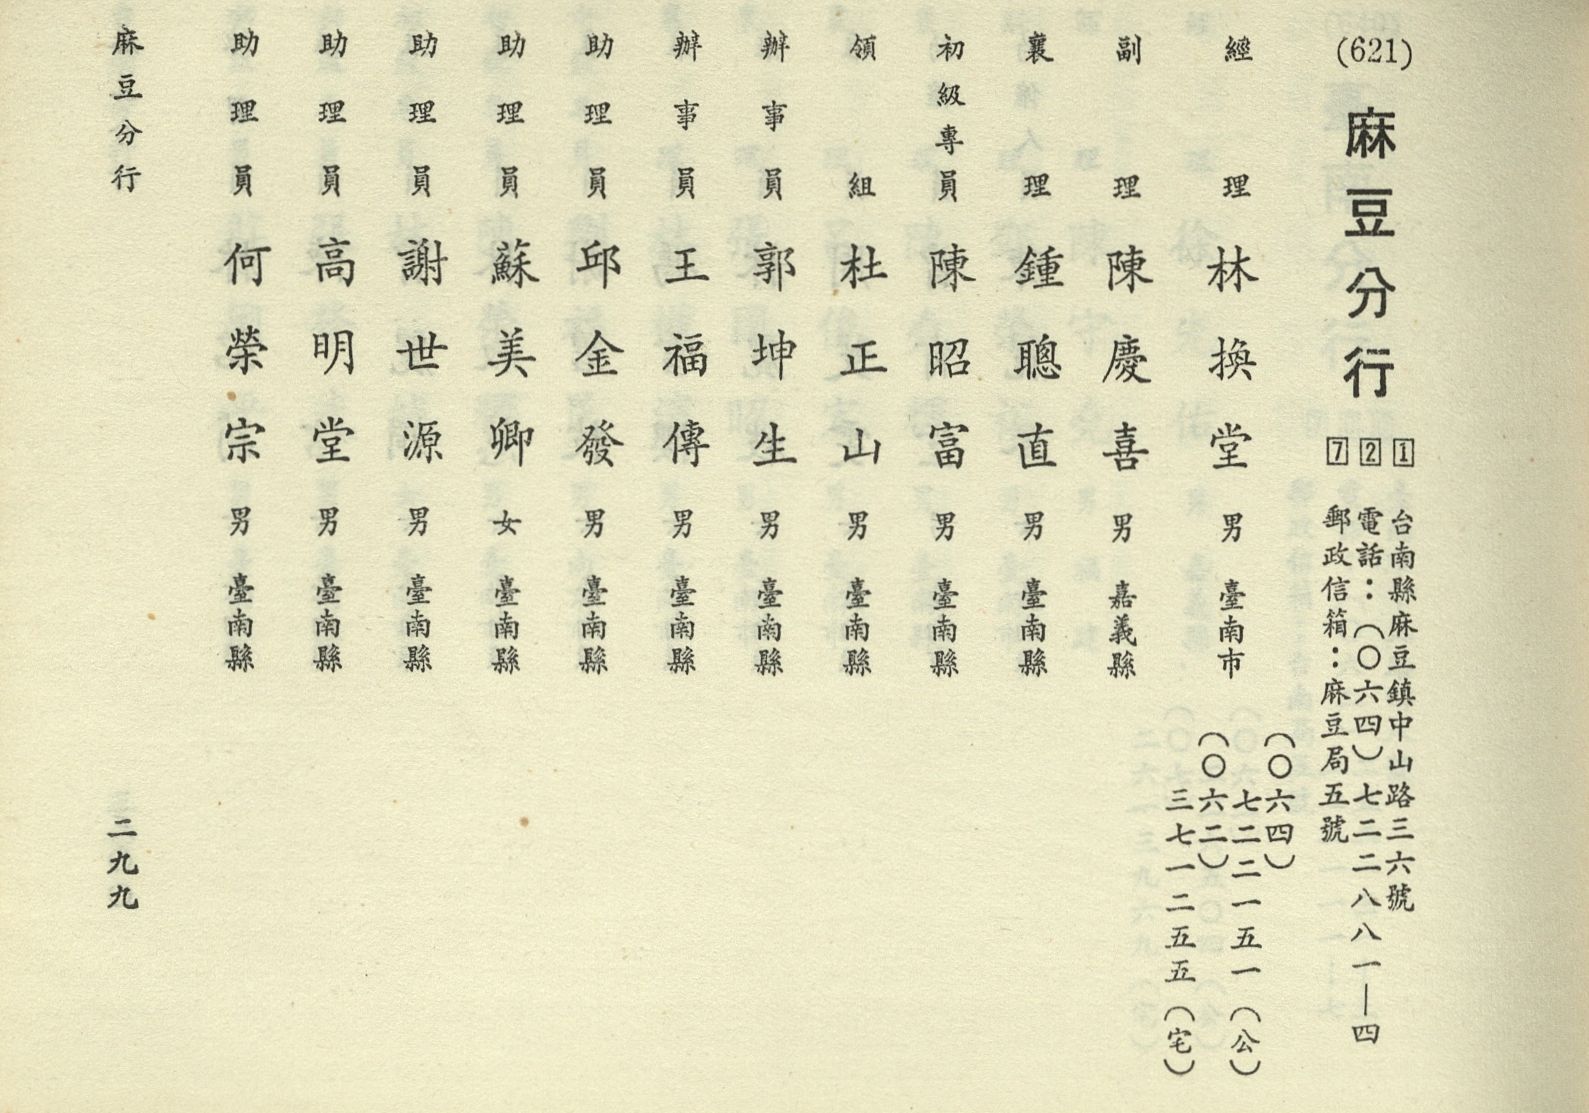 (621)
麻豆分行
1 台南縣麻豆鎮中山路三六號
2 電話：(〇六四)七二二八八一—四
7 郵政信箱：麻豆局五號
經理 林換堂 男 臺南市
(〇六四)
七二二一五一(公)
(〇六二)
三七一二五五(宅)
副理 陳慶喜 男 嘉義縣
襄理 鍾聰直 男 臺南縣
初級專員 陳昭富 男 臺南縣
領組 杜正山 男 臺南縣
辦事員 郭坤生 男 臺南縣
辦事員 王福傳 男 臺南縣
助理員 邱金發 男 臺南縣
助理員 蘇美卿 女 臺南縣
助理員 謝世源 男 臺南縣
助理員 高明堂 男 臺南縣
助理員 何榮宗 男 臺南縣
麻豆分行
二九九